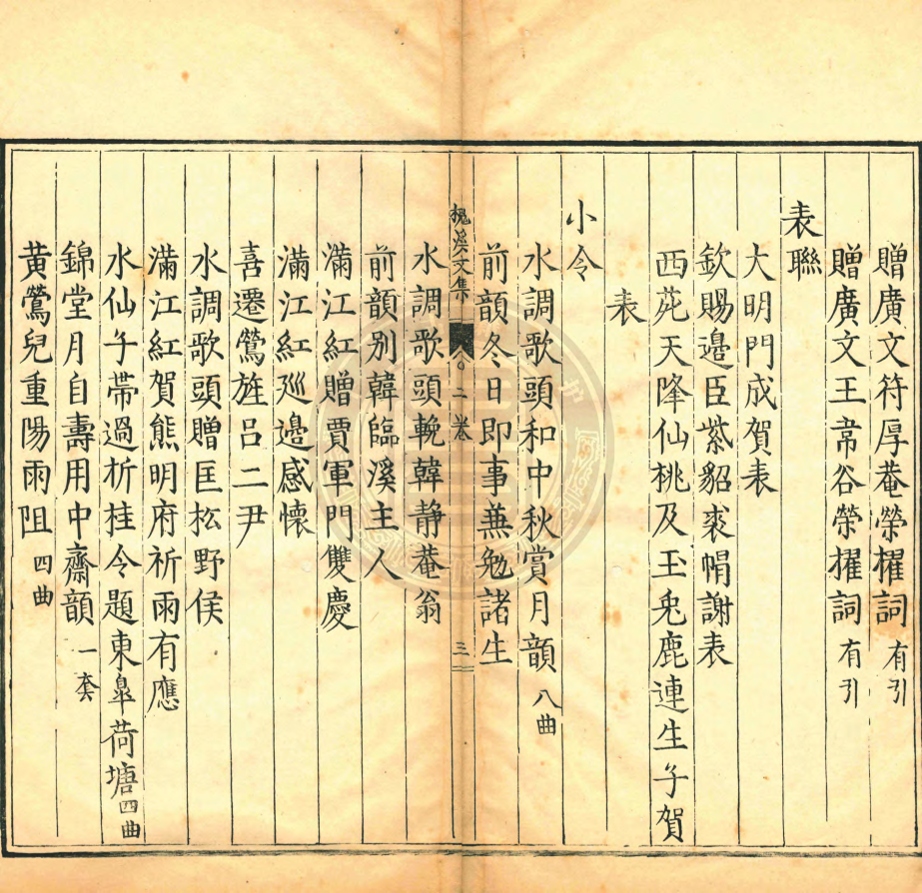 贈廣文符厚菴榮櫂詞有引
贈廣文王常谷榮擢詞有引
表聯
大明門成賀表
欽賜邉臣紫貂裘帽謝表
西苑天降仙桃及玉兎鹿連生子賀
表
小令
水調歌頭和中秋賞月韻八曲
前韻冬日即事蒹勉諸生
槐溪文集 二卷 三
水調歌頭輓韓靜菴翁
前韻别韓臨溪主人
滿江紅贈賈軍門雙慶
滿江紅廵邉感懷
喜遷鶯旌吕二尹
水調歌頭贈匡松野侯
滿江紅賀熊明府祈雨有應
水仙子帶過折桂令題東皐荷塘四曲
錦堂月自壽用中齋韻一套
黄鶯兒重陽雨阻四曲